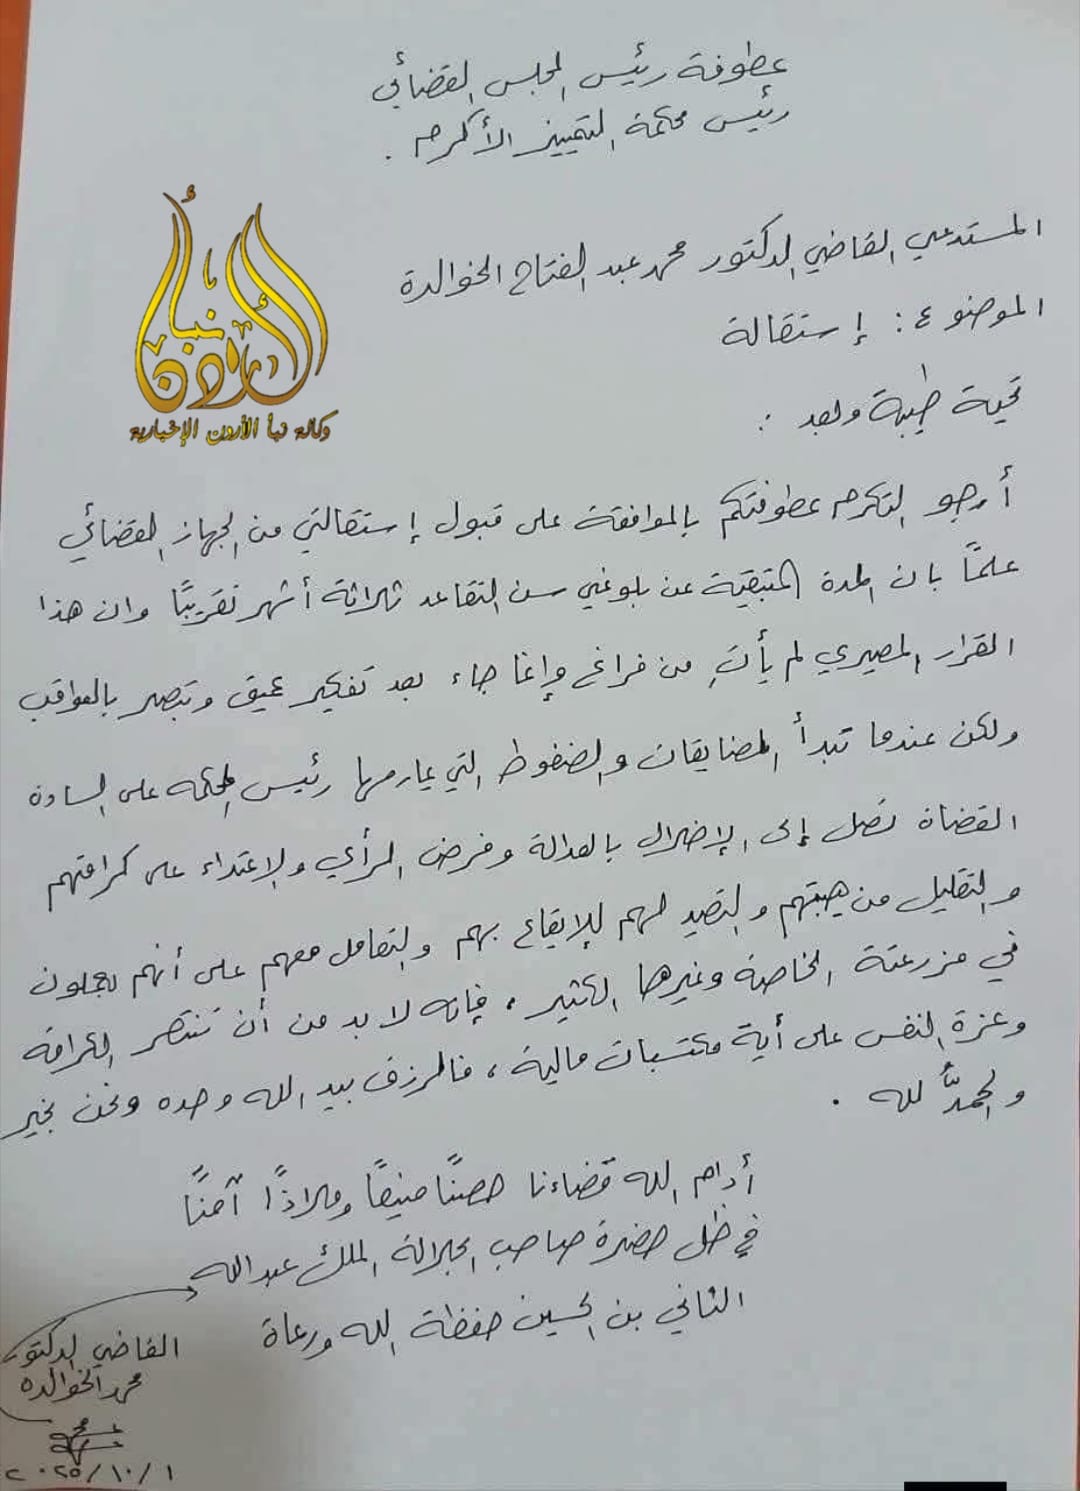 عطوفة رئيس المجلس القضائي
رئيس محكمة التمييز الأكرم .
المستدعي القاضي الدكتور محمد عبد الفتاح الخوالدة
الموضوع : إستقالة
نبأ الأردن
وكالة نبأ الأردن الإخبارية
تحية طيبة وبعد :
أرجو التكرم عطوفتكم بالموافقة على قبول إستقالتي من الجهاز القضائي
علماً بان المدة المتبقية عن بلوغي سن التقاعد ثلاثة أشهر تقريباً وان هذا
القرار المصيري لم يأتِ من فراغ وإنما جاء بعد تفكير عميق وتبصر بالعواقب
ولكن عندما تبدأ المضايقات والضغوط التي يمارسها رئيس المحكمه على السادة
القضاة تصل إلى الإخلال بالعدالة وفرض الرأي والإعتداء على كرامتهم
والتقليل من هيبتهم والتصيد لهم للإيقاع بهم والتعامل معهم على أنهم يعملون
في مزرعتة الخاصة وغيرها الكثير ، فإنه لا بد من أن تنتصر الكرامه
وعزة النفس على أية مكتسبات مالية ، فالرزق بيد الله وحده ونحن بخير
والحمدُ لله .
أدام الله قضاءنا حصناً منيعاً وملاذاً آمناً
في ظل حضرة صاحب الجلالة الملك عبدالله
الثاني بن الحسين حفظة الله ورعاة
القاضي الدكتور
محمد الخوالده
٢٠٢٥/١٠/١